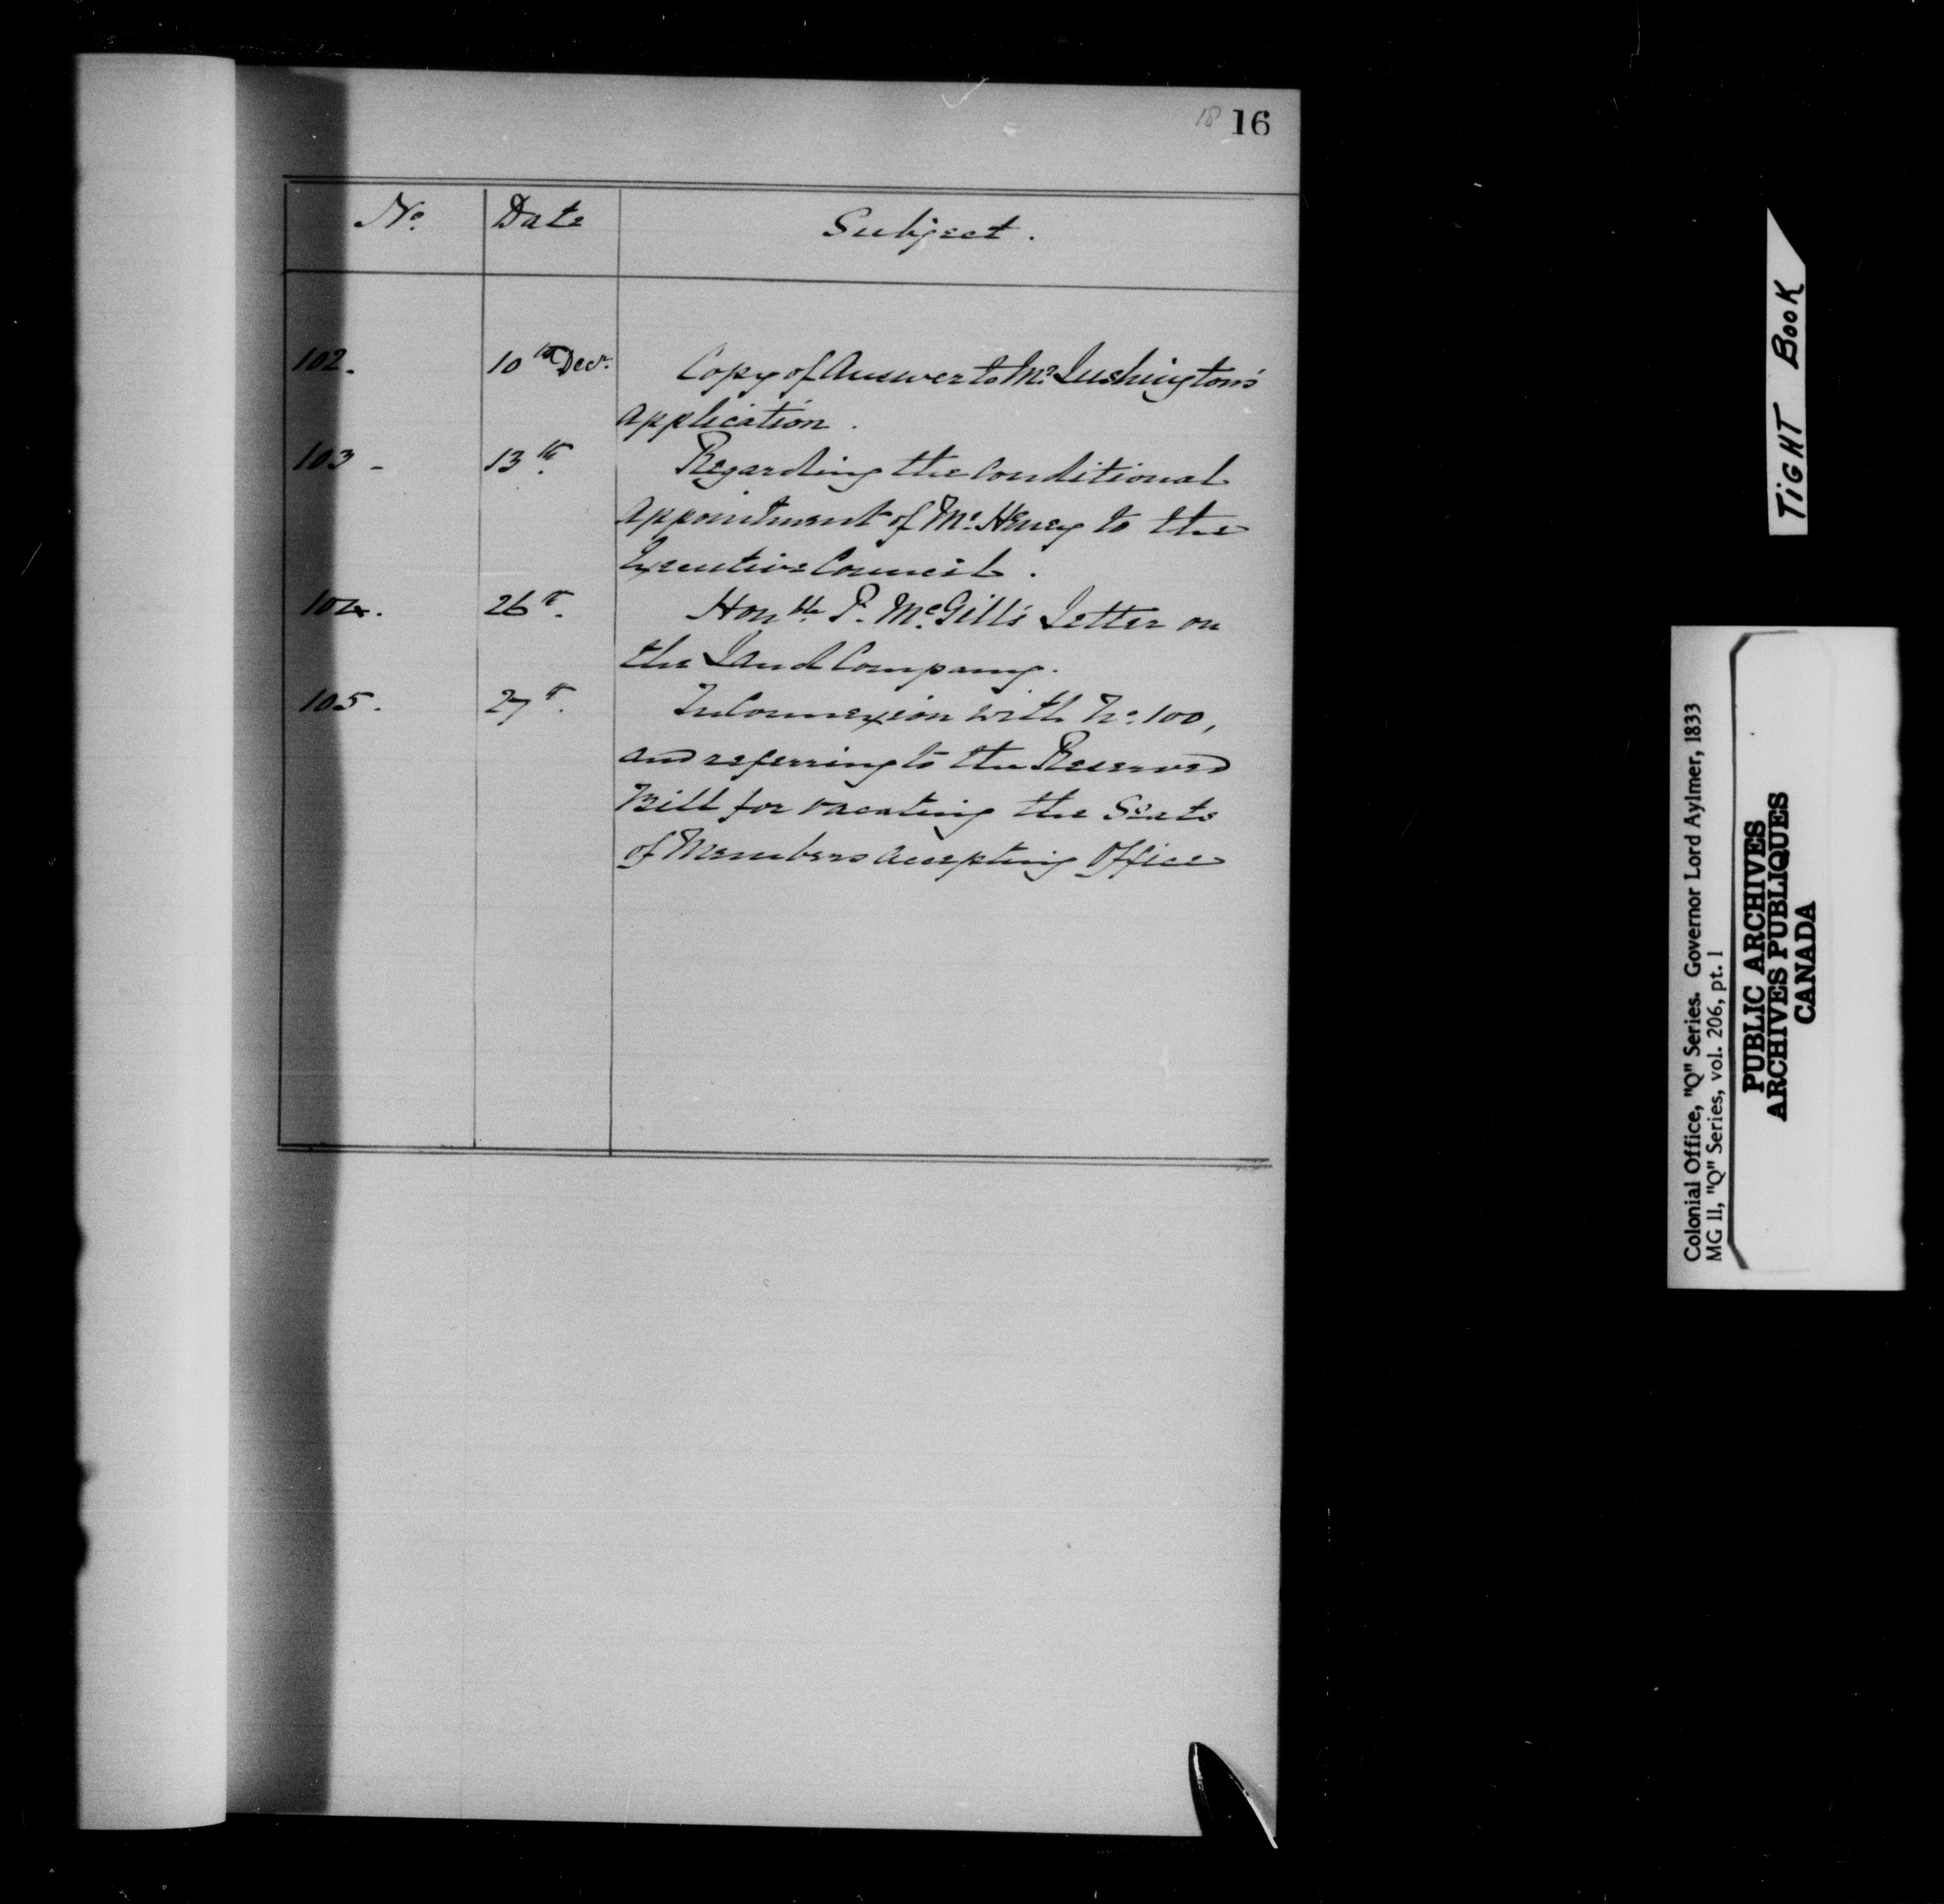 18 16
No. Date Subject.
102. 10th Decr. Copy of Answer to Mr. Lushington's
application.
103 - 13th. Regarding the Conditional
appointment of Mr. Heney to the
Executive Council.
104. 26th. Honble. P. McGill's Letter on
the Land Company.
105. 27th. In Connexion with No. 100,
and referring to the Reserved
Bill for vacating the Seats
of Members accepting Office
TIGHT BOOK
Colonial Office, "Q" Series. Governor Lord Aylmer, 1833
MG 11, "Q" Series, vol. 206, pt. 1
PUBLIC ARCHIVES
ARCHIVES PUBLIQUES
CANADA